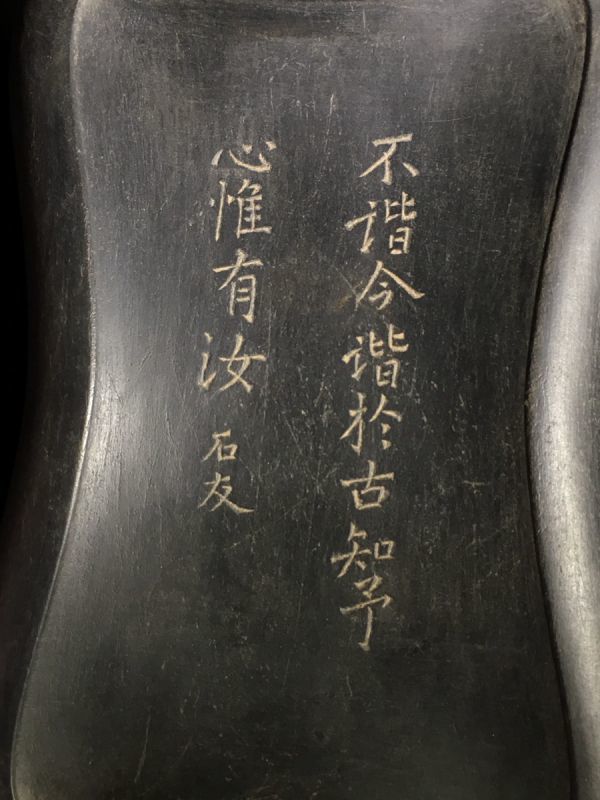 不谐今谐於古知予
心惟有汝 石友